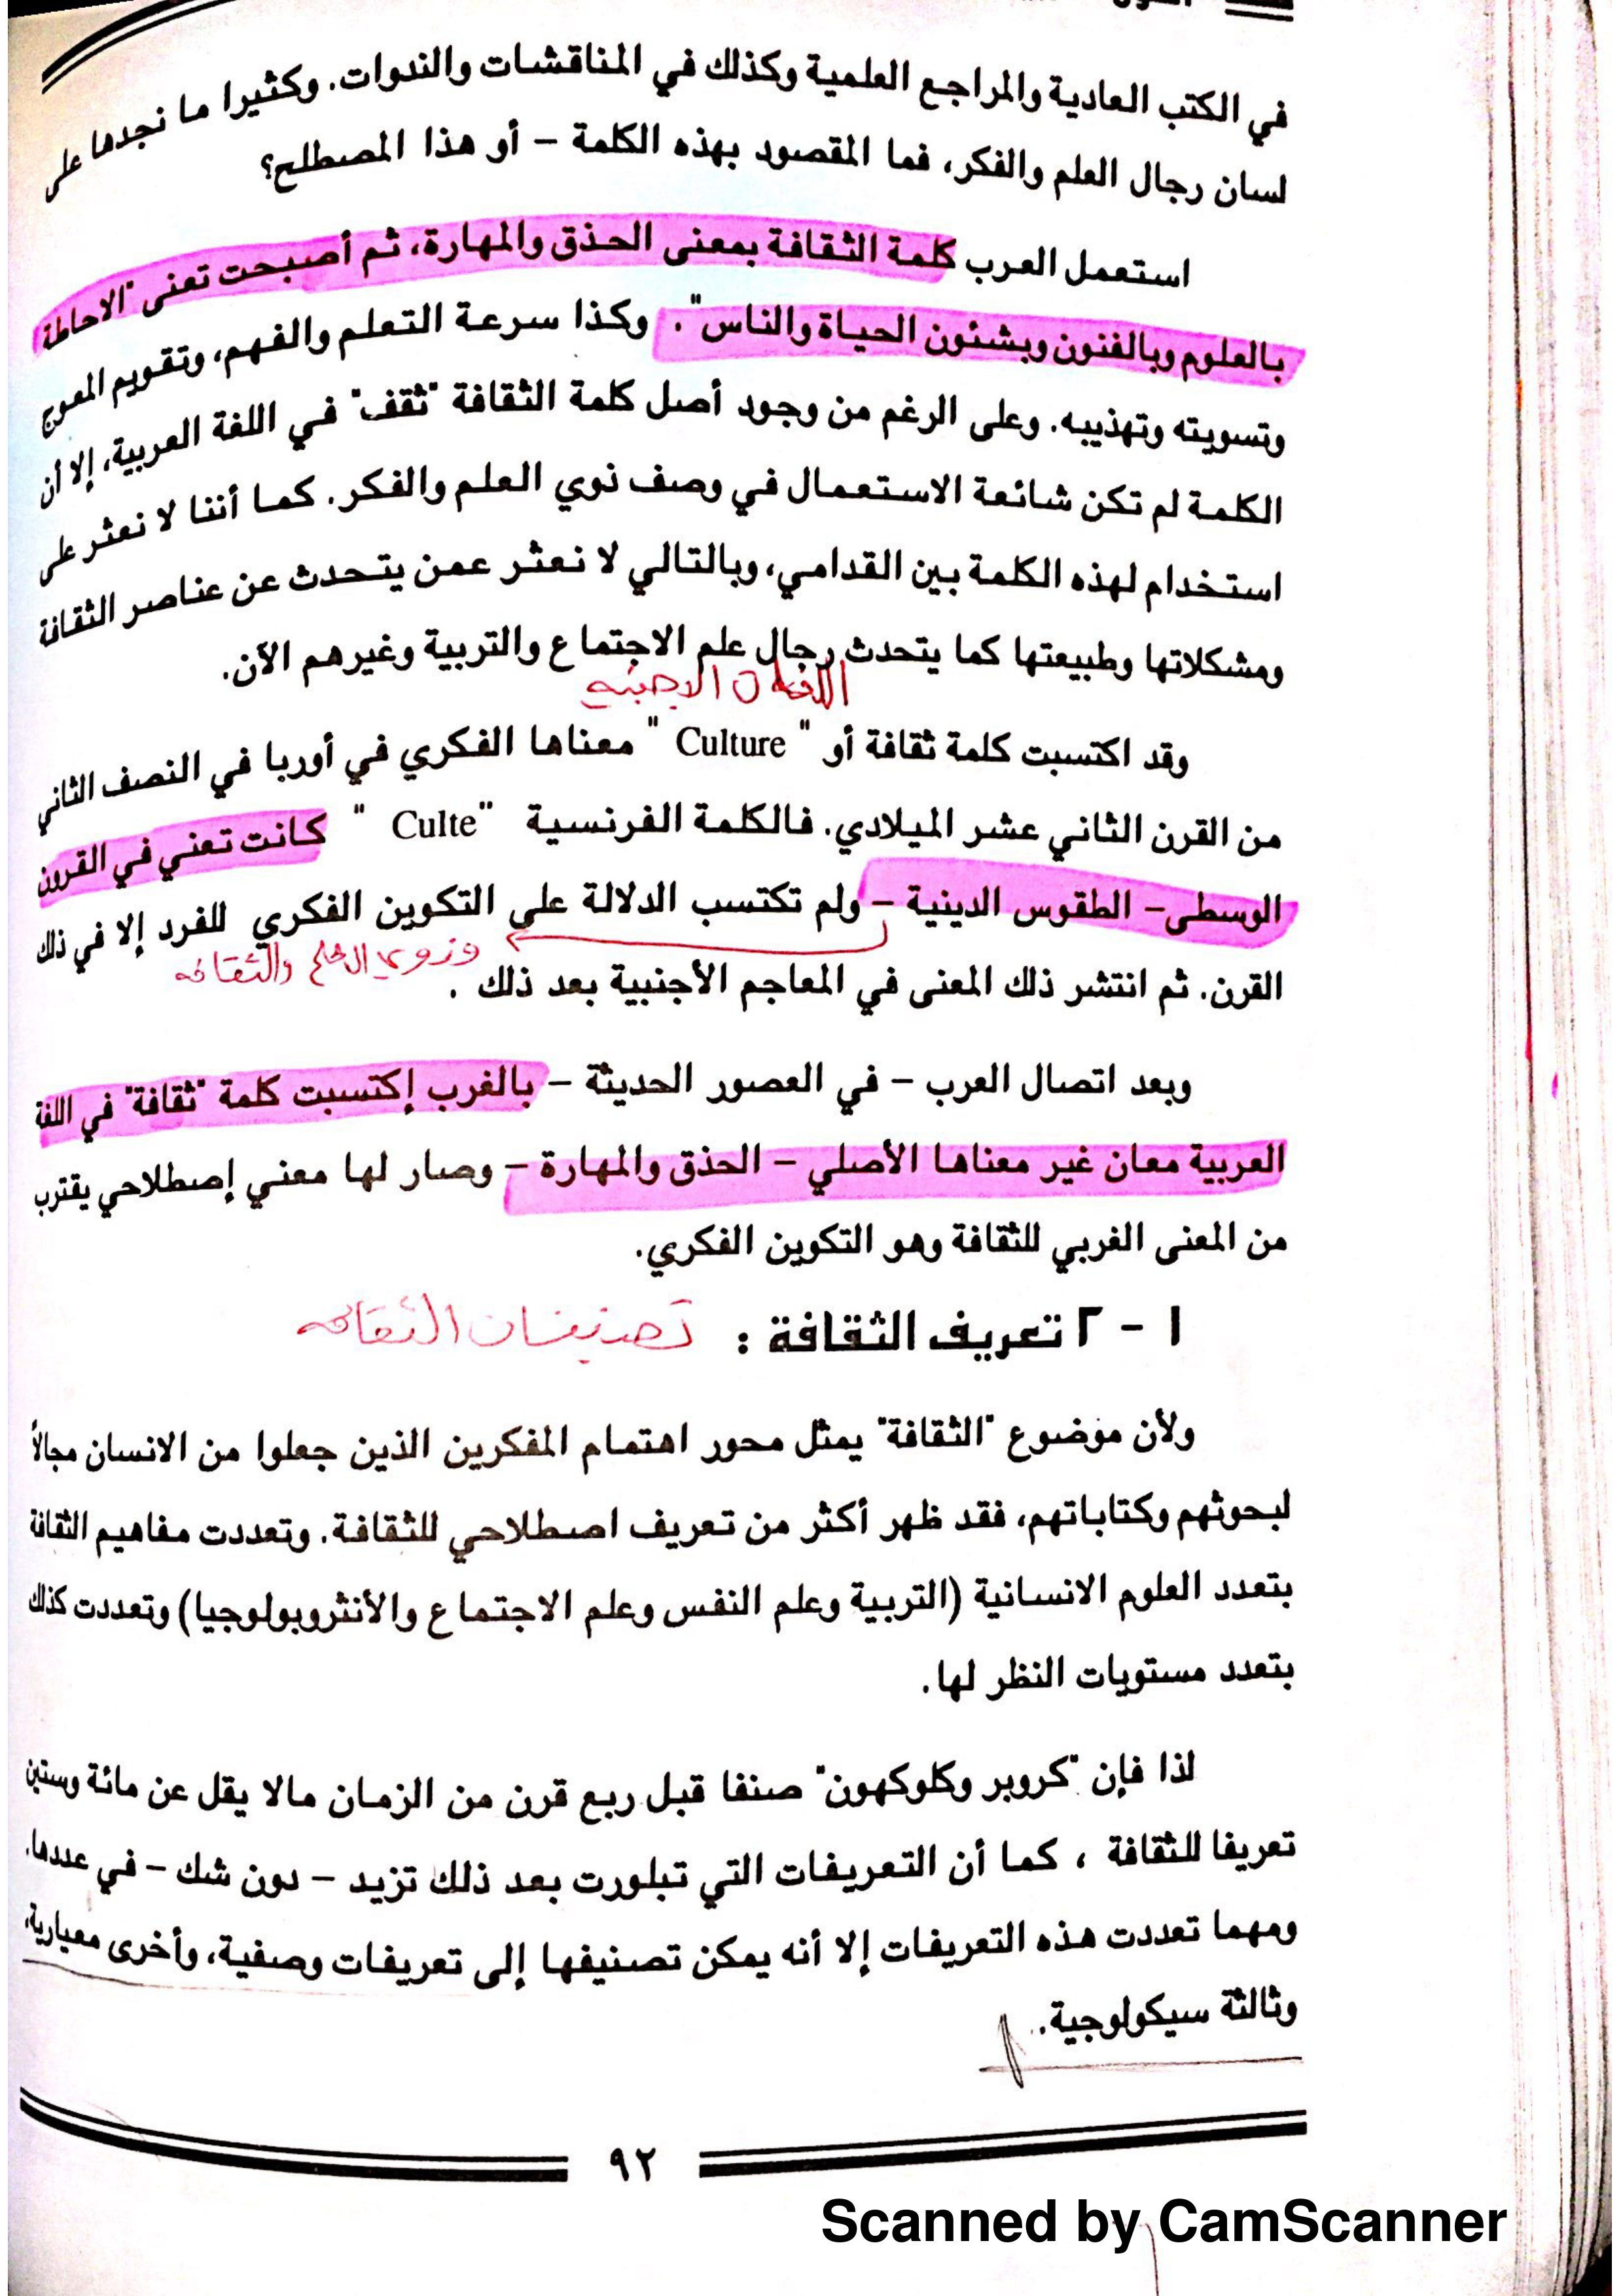 في الكتب العادية والمراجع العلمية وكذلك في المناقشات والندوات. وكثيرا ما نجدها على
لسان رجال العلم والفكر، فما المقصود بهذه الكلمة – أو هذا المصطلح؟
استعمل العرب كلمة الثقافة بمعنى الحذق والمهارة، ثم أصبحت تعنى "الاحاطة
بالعلوم وبالفنون وبشئون الحياة والناس". وكذا سرعة التعلم والفهم، وتقويم المعوج
وتسويته وتهذيبه. وعلى الرغم من وجود أصل كلمة الثقافة "ثقف" في اللغة العربية، إلا أن
الكلمة لم تكن شائعة الاستعمال في وصف نوي العلم والفكر. كما أننا لا نعثر على
استخدام لهذه الكلمة بين القدامي، وبالتالي لا نعثر عمن يتحدث عن عناصر الثقافة
ومشكلاتها وطبيعتها كما يتحدث رجال علم الاجتماع والتربية وغيرهم الآن.
الاجنبيه
وقد اكتسبت كلمة ثقافة أو " Culture " معناها الفكري في أوربا في النصف الثاني
من القرن الثاني عشر الميلادي. فالكلمة الفرنسية "Culte " كانت تعني في القرون
الوسطى– الطقوس الدينية – ولم تكتسب الدلالة على التكوين الفكري للفرد إلا في ذلك
وذوي العلم والثقافه
القرن. ثم انتشر ذلك المعنى في المعاجم الأجنبية بعد ذلك .
وبعد اتصال العرب – في العصور الحديثة – بالغرب إكتسبت كلمة "ثقافة" في اللغة
العربية معان غير معناها الأصلي – الحذق والمهارة – وصار لها معني إصطلاحي يقترب
من المعنى الغربي للثقافة وهو التكوين الفكري.
١ – ٢ تعريف الثقافة : تصنيفات الثقافه
ولأن موضوع "الثقافة" يمثل محور اهتمام المفكرين الذين جعلوا من الانسان مجالاً
لبحوثهم وكتاباتهم، فقد ظهر أكثر من تعريف اصطلاحي للثقافة. وتعددت مفاهيم الثقافة
بتعدد العلوم الانسانية (التربية وعلم النفس وعلم الاجتماع والأنثروبولوجيا) وتعددت كذلك
بتعدد مستويات النظر لها.
لذا فإن "كروبر وكلوكهون" صنفا قبل ربع قرن من الزمان مالا يقل عن مائة وستين
تعريفا للثقافة ، كما أن التعريفات التي تبلورت بعد ذلك تزيد – دون شك – في عددها.
ومهما تعددت هذه التعريفات إلا أنه يمكن تصنيفها إلى تعريفات وصفية، وأخرى معيارية،
وثالثة سيكولوجية.
٩٢
Scanned by CamScanner